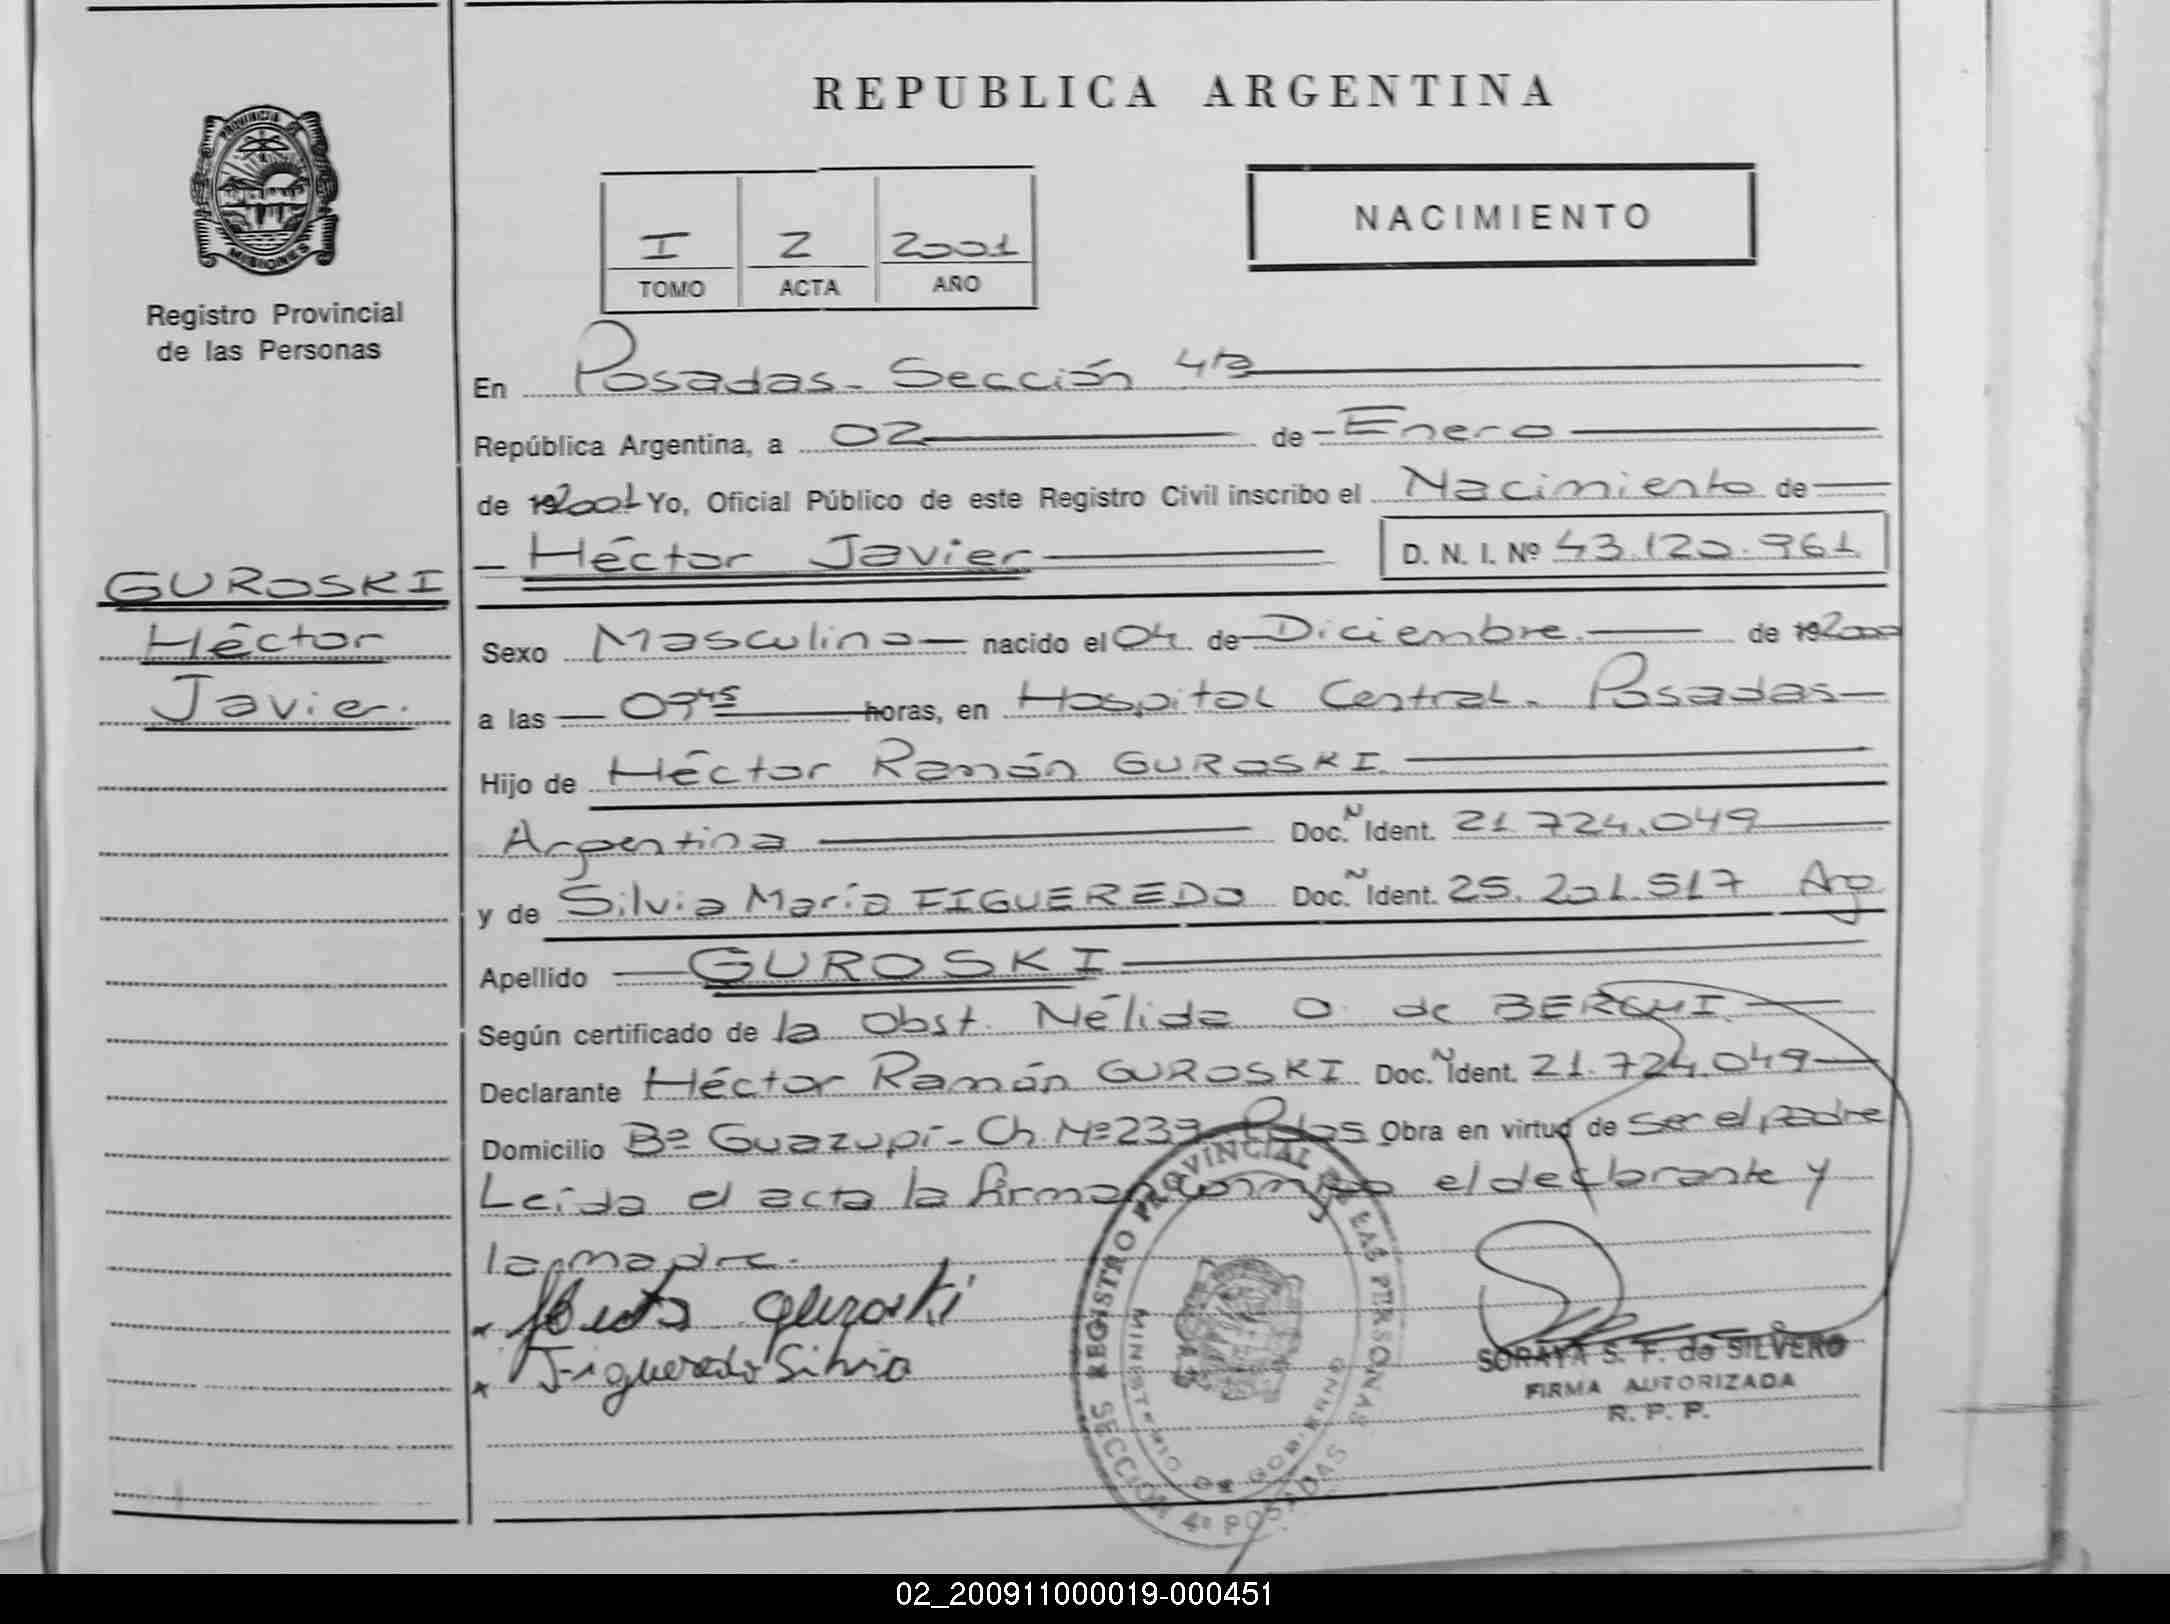 REPUBLICA ARGENTINA
PROVINCIA DE
MISIONES
Registro Provincial
de las Personas
I 2 2001
TOMO ACTA AÑO
NACIMIENTO
En Posadas - Sección 4ta
República Argentina, a 02 de Enero
de 192001 Yo, Oficial Público de este Registro Civil inscribo el Nacimiento de
Héctor Javier D. N. I. Nº 43.120.961
GUROSKI
Héctor
Javier.
Sexo Masculino nacido el 04 de Diciembre de 192000
a las 09 45 horas, en Hospital Central - Posadas
Hijo de Héctor Ramón GUROSKI
Argentina Doc. N Ident. 21.724.049
y de Silvia María FIGUEREDO Doc. N Ident. 25.201.517 Arg
Apellido GUROSKI
Según certificado de la Obst. Nélida O. de
Declarante Héctor Ramón GUROSKI Doc. N Ident. 21.724.049
Domicilio Bº Guazupi - Ch. Nº 239 Pdas Obra en virtud de ser el padre
Leída el acta la firman conmigo el declarante y
la madre.
x Guroski
x Figueredo Silvia
REGISTRO PROVINCIAL DE LAS PERSONAS
MINISTERIO DE GOBIERNO
SECCION 4ª POSADAS
SORAYA S. F. de SILVERO
FIRMA AUTORIZADA
R. P. P.
02_200911000019-000451